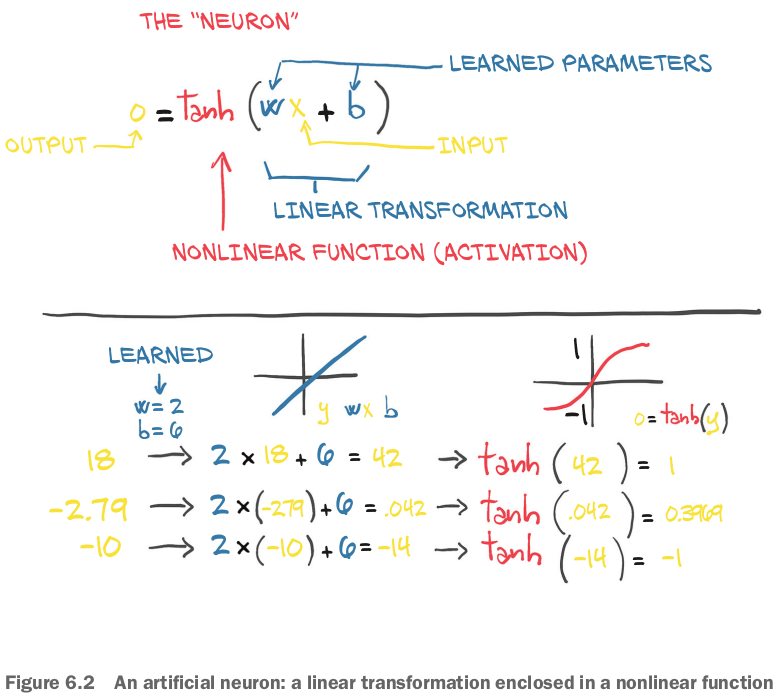 THE "NEURON"
LEARNED PARAMETERS
o = tanh (w x + b)
OUTPUT
INPUT
LINEAR TRANSFORMATION
NONLINEAR FUNCTION (ACTIVATION)
LEARNED
w = 2
b = 6
y wx b
1
-1
o = tanh(y)
18 → 2 × 18 + 6 = 42 → tanh (42) = 1
-2.79 → 2 × (-279) + 6 = .042 → tanh (.042) = 0.3969
-10 → 2 × (-10) + 6 = -14 → tanh (-14) = -1
Figure 6.2 An artificial neuron: a linear transformation enclosed in a nonlinear function